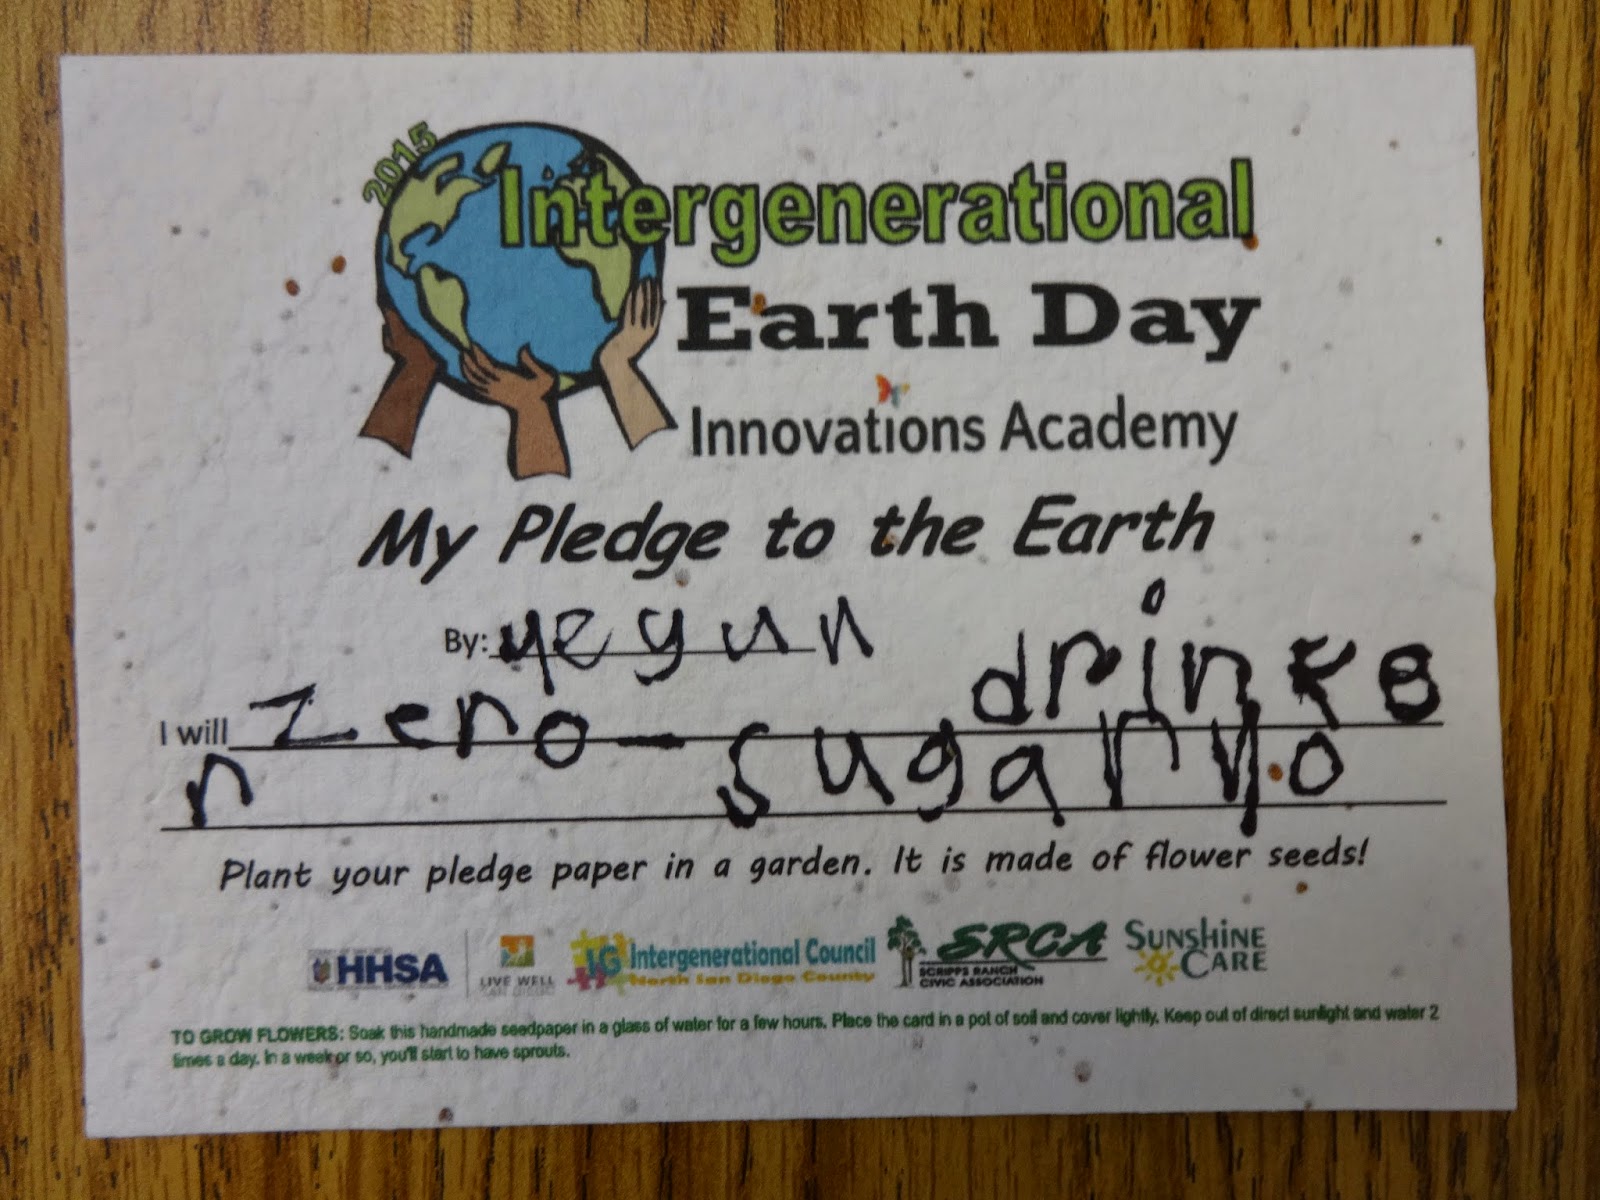 2015
Intergenerational
Earth Day
Innovations Academy
My Pledge to the Earth
By: yeyun
I will zero-sugar drinks
n yo
Plant your pledge paper in a garden. It is made of flower seeds!
HHSA
LIVE WELL
IG Intergenerational Council
North San Diego County
SRCA
SCRIPPS RANCH
CIVIC ASSOCIATION
SUNSHINE
CARE
TO GROW FLOWERS: Soak this handmade seedpaper in a glass of water for a few hours. Place the card in a pot of soil and cover lightly. Keep out of direct sunlight and water 2
times a day. In a week or so, you'll start to have sprouts.